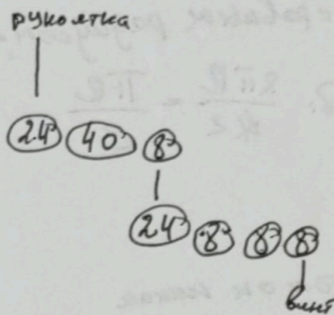 рукоятка
24 40 8
24 8 8 8
винт